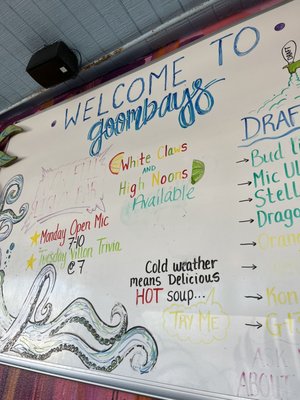 WELCOME TO
goombays
White Claws
AND
High Noons
Available
Monday Open Mic
7-10
Tuesday Trivia
@ 7
Cold weather
means Delicious
HOT soup...
TRY ME
DRAF
Bud Li
Mic Ul
Stell
Drago
Oran
Kon
ASK
ABOUT